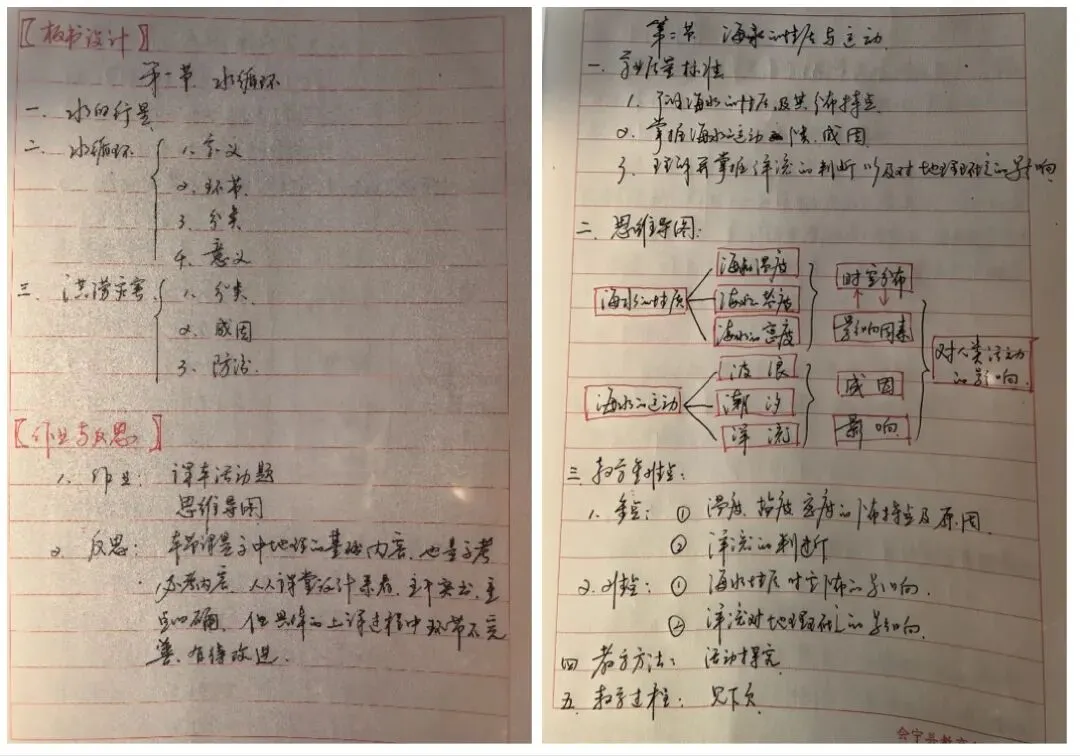 【板书设计】
第一节 水循环
一、水的行星
二、水循环
1、定义
2、环节
3、分类
4、意义
三、洪涝灾害
1、分类
2、成因
3、防治
【作业与反思】
1、作业：课本活动题
思维导图
2、反思：本节课是高中地理的基础内容，也是高考
必考内容，从课堂设计来看，主干突出，重
点明确，但具体的上课过程中环节不完
善，有待改进。
第二节 海水的性质与运动
一、学业质量标准
1、海水的性质及其分布特点
2、掌握海水运动 成因
3、理解并掌握洋流的判断以及对地理环境的影响
二、思维导图：
海水的性质
海水温度
海水盐度
海水的密度
时空分布
影响因素
海水的运动
波浪
潮汐
洋流
成因
影响
对人类活动
的影响
三、教学重难点：
1、重点：① 温度、盐度、密度的分布特点及原因
② 洋流的判断
2、难点：① 海水性质时空分布的影响
② 洋流对地理环境的影响
四、教学方法：活动探究
五、教学过程：见下页
会宁县教